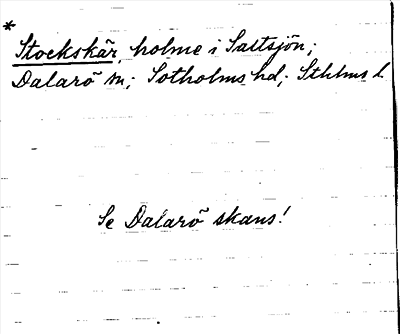 *
Stockskär, holme i Saltsjön;
Dalarö sn; Sotholms hd; Sthlms l.
Se Dalarö skans!